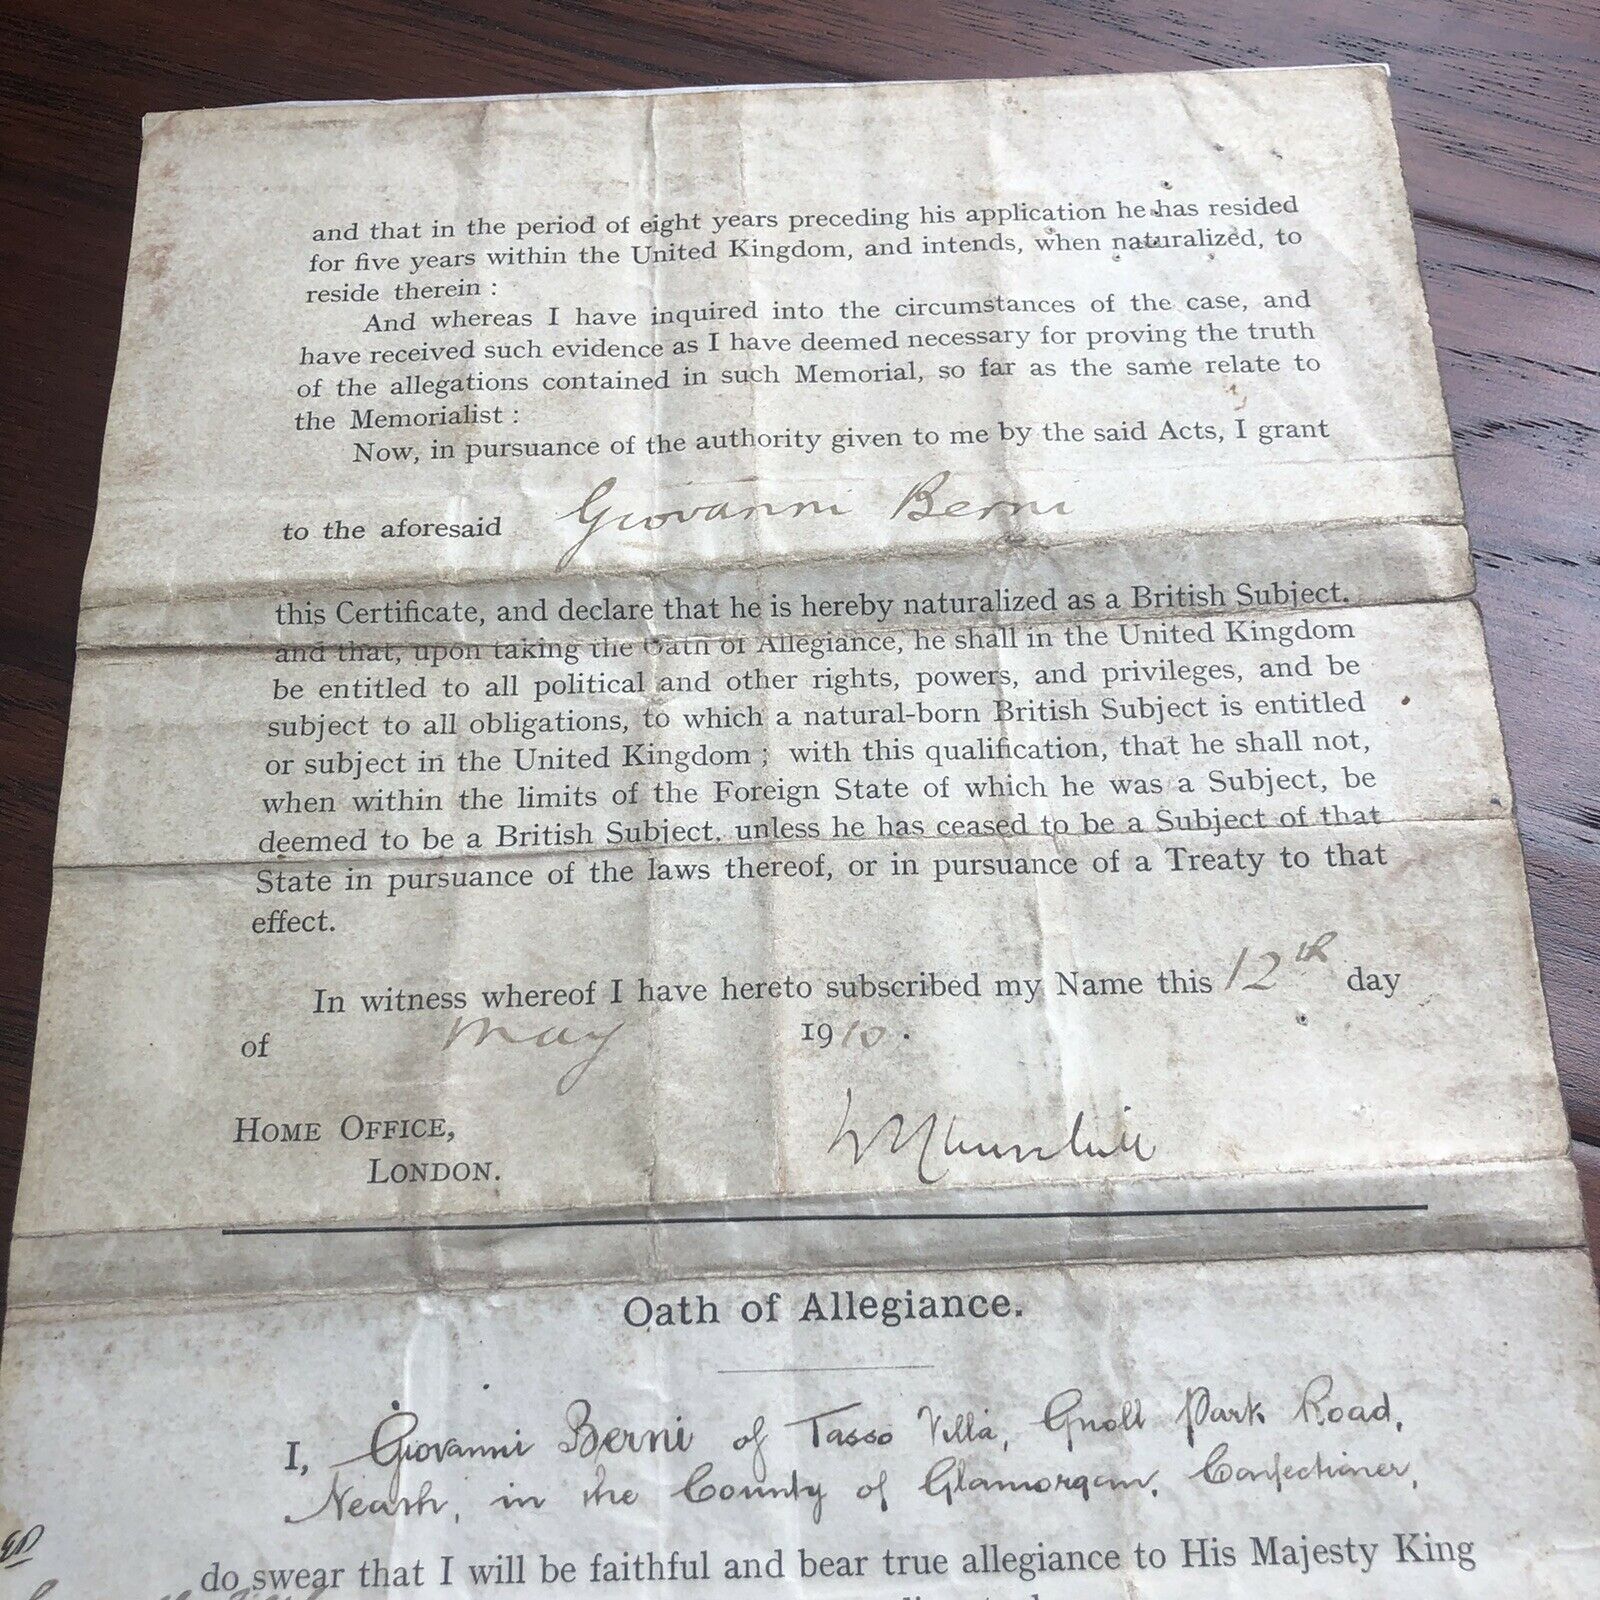 and that in the period of eight years preceding his application he has resided
for five years within the United Kingdom, and intends, when naturalized, to
reside therein :
And whereas I have inquired into the circumstances of the case, and
have received such evidence as I have deemed necessary for proving the truth
of the allegations contained in such Memorial, so far as the same relate to
the Memorialist :
Now, in pursuance of the authority given to me by the said Acts, I grant
to the aforesaid Giovanni Berni
this Certificate, and declare that he is hereby naturalized as a British Subject.
and that, upon taking the Oath of Allegiance, he shall in the United Kingdom
be entitled to all political and other rights, powers, and privileges, and be
subject to all obligations, to which a natural-born British Subject is entitled
or subject in the United Kingdom ; with this qualification, that he shall not,
when within the limits of the Foreign State of which he was a Subject, be
deemed to be a British Subject, unless he has ceased to be a Subject of that
State in pursuance of the laws thereof, or in pursuance of a Treaty to that
effect.
In witness whereof I have hereto subscribed my Name this 12th day
of May 1910.
HOME OFFICE,
LONDON.
WSChurchill
Oath of Allegiance.
I, Giovanni Berni of Tasso Villa, Gnoll Park Road,
Neath, in the County of Glamorgan, Confectioner,
do swear that I will be faithful and bear true allegiance to His Majesty King